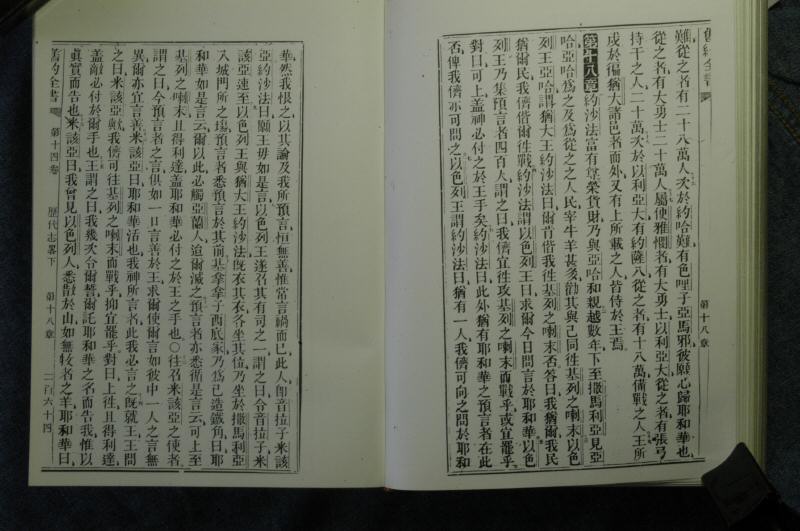 舊約全書
第十八章
難從之者有二十八萬人次於約哈難有色哩子亞馬邪彼願心歸耶和華也
從之者有大勇士二十萬人屬便雅憫者有大勇士以利亞大從之者有張弓
持干之人二十萬次於以利亞大有約薩八從之者有十八萬備戰之人王所
戍於徧猶大諸邑者而外又有上所載之人皆侍於王焉
第十八章約沙法富有尊榮貨財乃與亞哈和親越數年下至撒馬利亞見亞
哈亞哈為之及為從之之人民宰牛羊甚多勸其與己同往基列之喇末以色
列王亞哈謂猶大王約沙法曰爾肯偕我往基列之喇末否答曰我儕爾我民
猶爾民我儕偕爾往戰約沙法謂以色列王曰求爾今日問言於耶和華以色
列王乃集預言者四百人謂之曰我儕宜往攻基列之喇末而戰乎或宜罷乎
對曰可上蓋神必付之於王手矣約沙法曰此外猶有耶和華之預言者在此
否俾我儕亦可問之以色列王謂約沙法曰猶有一人我儕可向之問於耶和
華然我恨之以其論及我所預言恒無善惟常言禍而已此人卽音拉子米該
亞約沙法曰願王毋如是言以色列王遂召其有司之一謂之曰令音拉子米
該亞速至以色列王與猶大王約沙法旣衣其衣各坐其位乃坐於撒馬利亞
入城門所之場預言者悉預言於其前基拿拿子西底家乃為己造鐵角曰耶
和華如是言云爾以此必觸亞蘭人迨爾滅之預言者亦悉循是言云可上至
基列之喇末且得利達蓋耶和華必付之於王之手也〇往召米該亞之使者
謂之曰今預言者之言俱如一口言善於王求爾使爾言如彼中一人之言無
異爾亦宜言善米該亞曰耶和華活也我神所言者此我必言之旣就王王問
之曰米該亞歟我儕可往基列之喇末而戰乎抑宜罷乎對曰上往且得利達
蓋敵必付於爾手也王謂之曰我幾次令爾誓爾託耶和華之名而告我惟以
眞實而告也米該亞曰我曾見以色列人悉散於山如無牧者之羊耶和華曰
舊約全書
第十四卷
歷代志畧下
第十八章
二百六十四